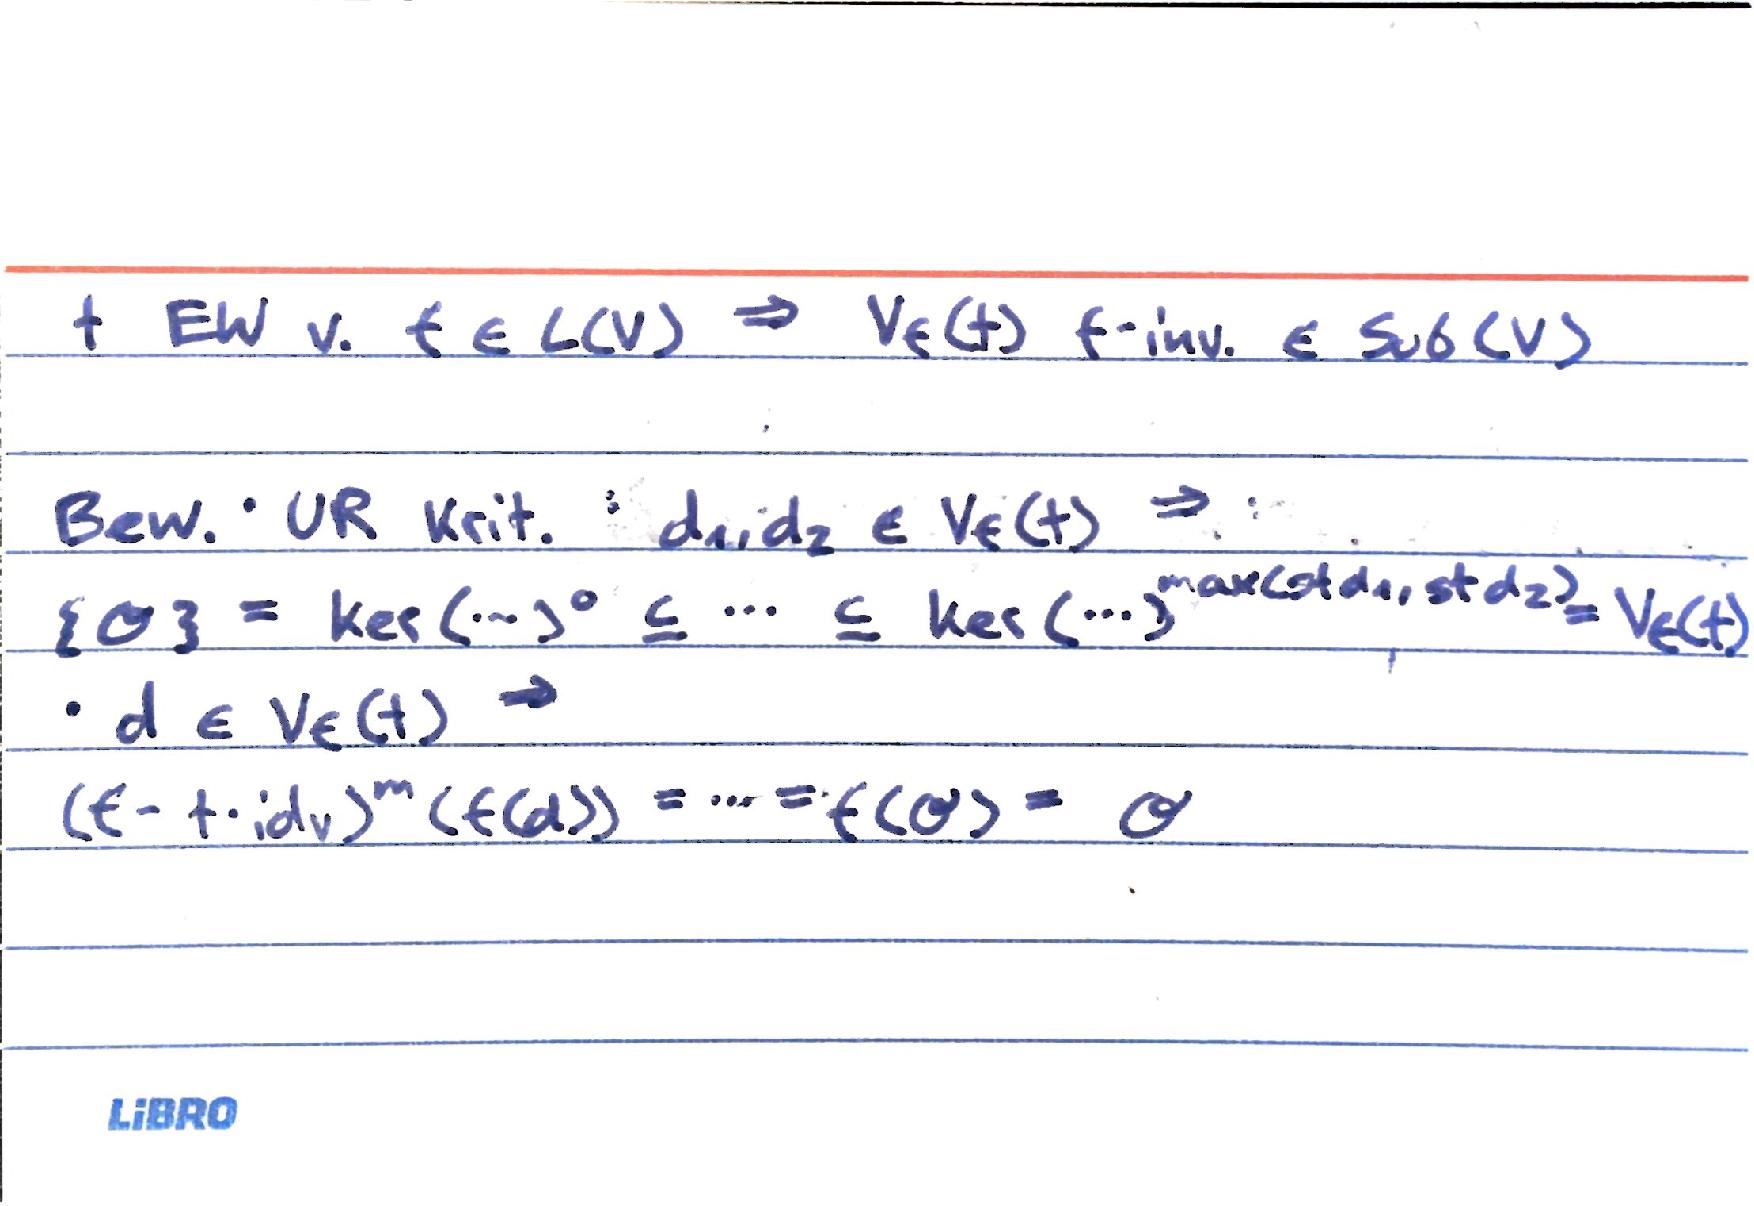 t EW v. f ∈ L(V) ⇒ Vf(t) f-inv. ∈ Sub(V)
Bew. · UR Krit. : d₁, d₂ ∈ Vf(t) ⇒ :
{σ} = ker(...)⁰ ⊆ ... ⊆ ker(...)^max(st d₁, st d₂) = Vf(t)
· d ∈ Vf(t) ⇒
(f - t·idᵥ)ᵐ(f(d)) = ... = f(σ) = σ
LiBRO